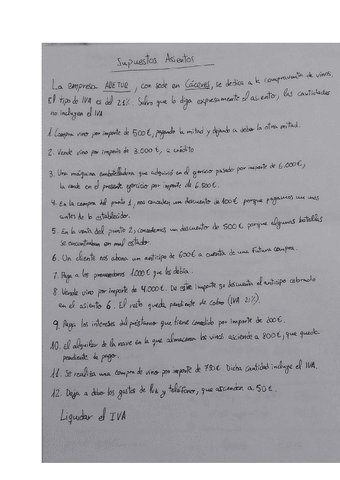 Supuestos Asientos
La empresa ADETUR, con sede en Cáceres, se dedica a la compraventa de vinos.
El tipo de IVA es del 21%. Salvo que lo diga expresamente el asiento, las cantidades
no incluyen el IVA
1. Compra vino por importe de 500€, pagando la mitad y dejando a deber la otra mitad.
2. Vende vino por importe de 3.000€, a crédito
3. Una máquina embotelladora que adquirió en el ejercicio pasado por importe de 6.000€,
la vende en el presente ejercicio por importe de 6.500€.
4. En la compra del punto 1, nos conceden un descuento de 100€ porque pagamos un mes
antes de lo establecido.
5. En la venta del punto 2, concedemos un descuento de 500€ porque algunas botellas
se encontraban en mal estado
6. Un cliente nos abona un anticipo de 600€ a cuenta de una futura compra.
7. Paga a los proveedores 1.000€ que les debía.
8. Vende vino por importe de 4.000€. De este importe se descuenta el anticipo cobrado
en el asiento 6. El resto queda pendiente de cobro (IVA 21%).
9. Paga los intereses del préstamo que tiene concedido por importe de 200€.
10. El alquiler de la nave en la que almacena los vinos asciende a 800€, que queda
pendiente de pago.
11. Se realiza una compra de vino por importe de 750€. Dicha cantidad incluye el IVA.
12. Deja a deber los gastos de luz y teléfono, que ascienden a 50€.
Liquidar el IVA